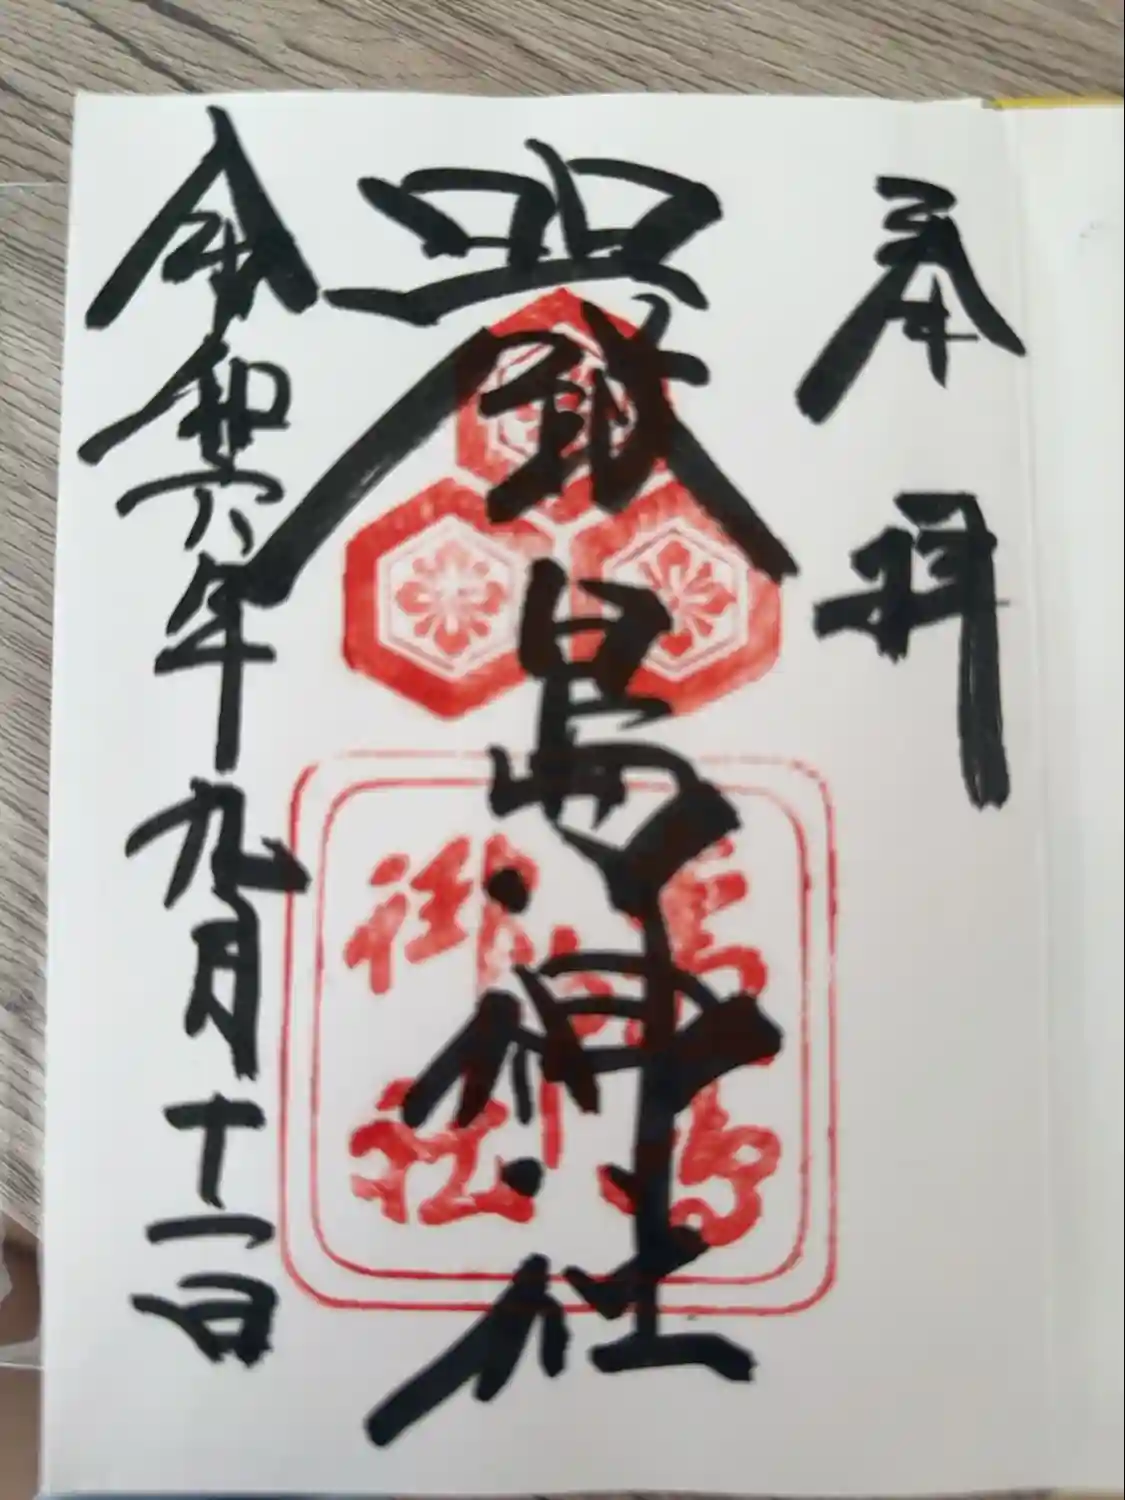 奉拝
嚴島神社
令和六年九月十一日
嚴島
神
御社